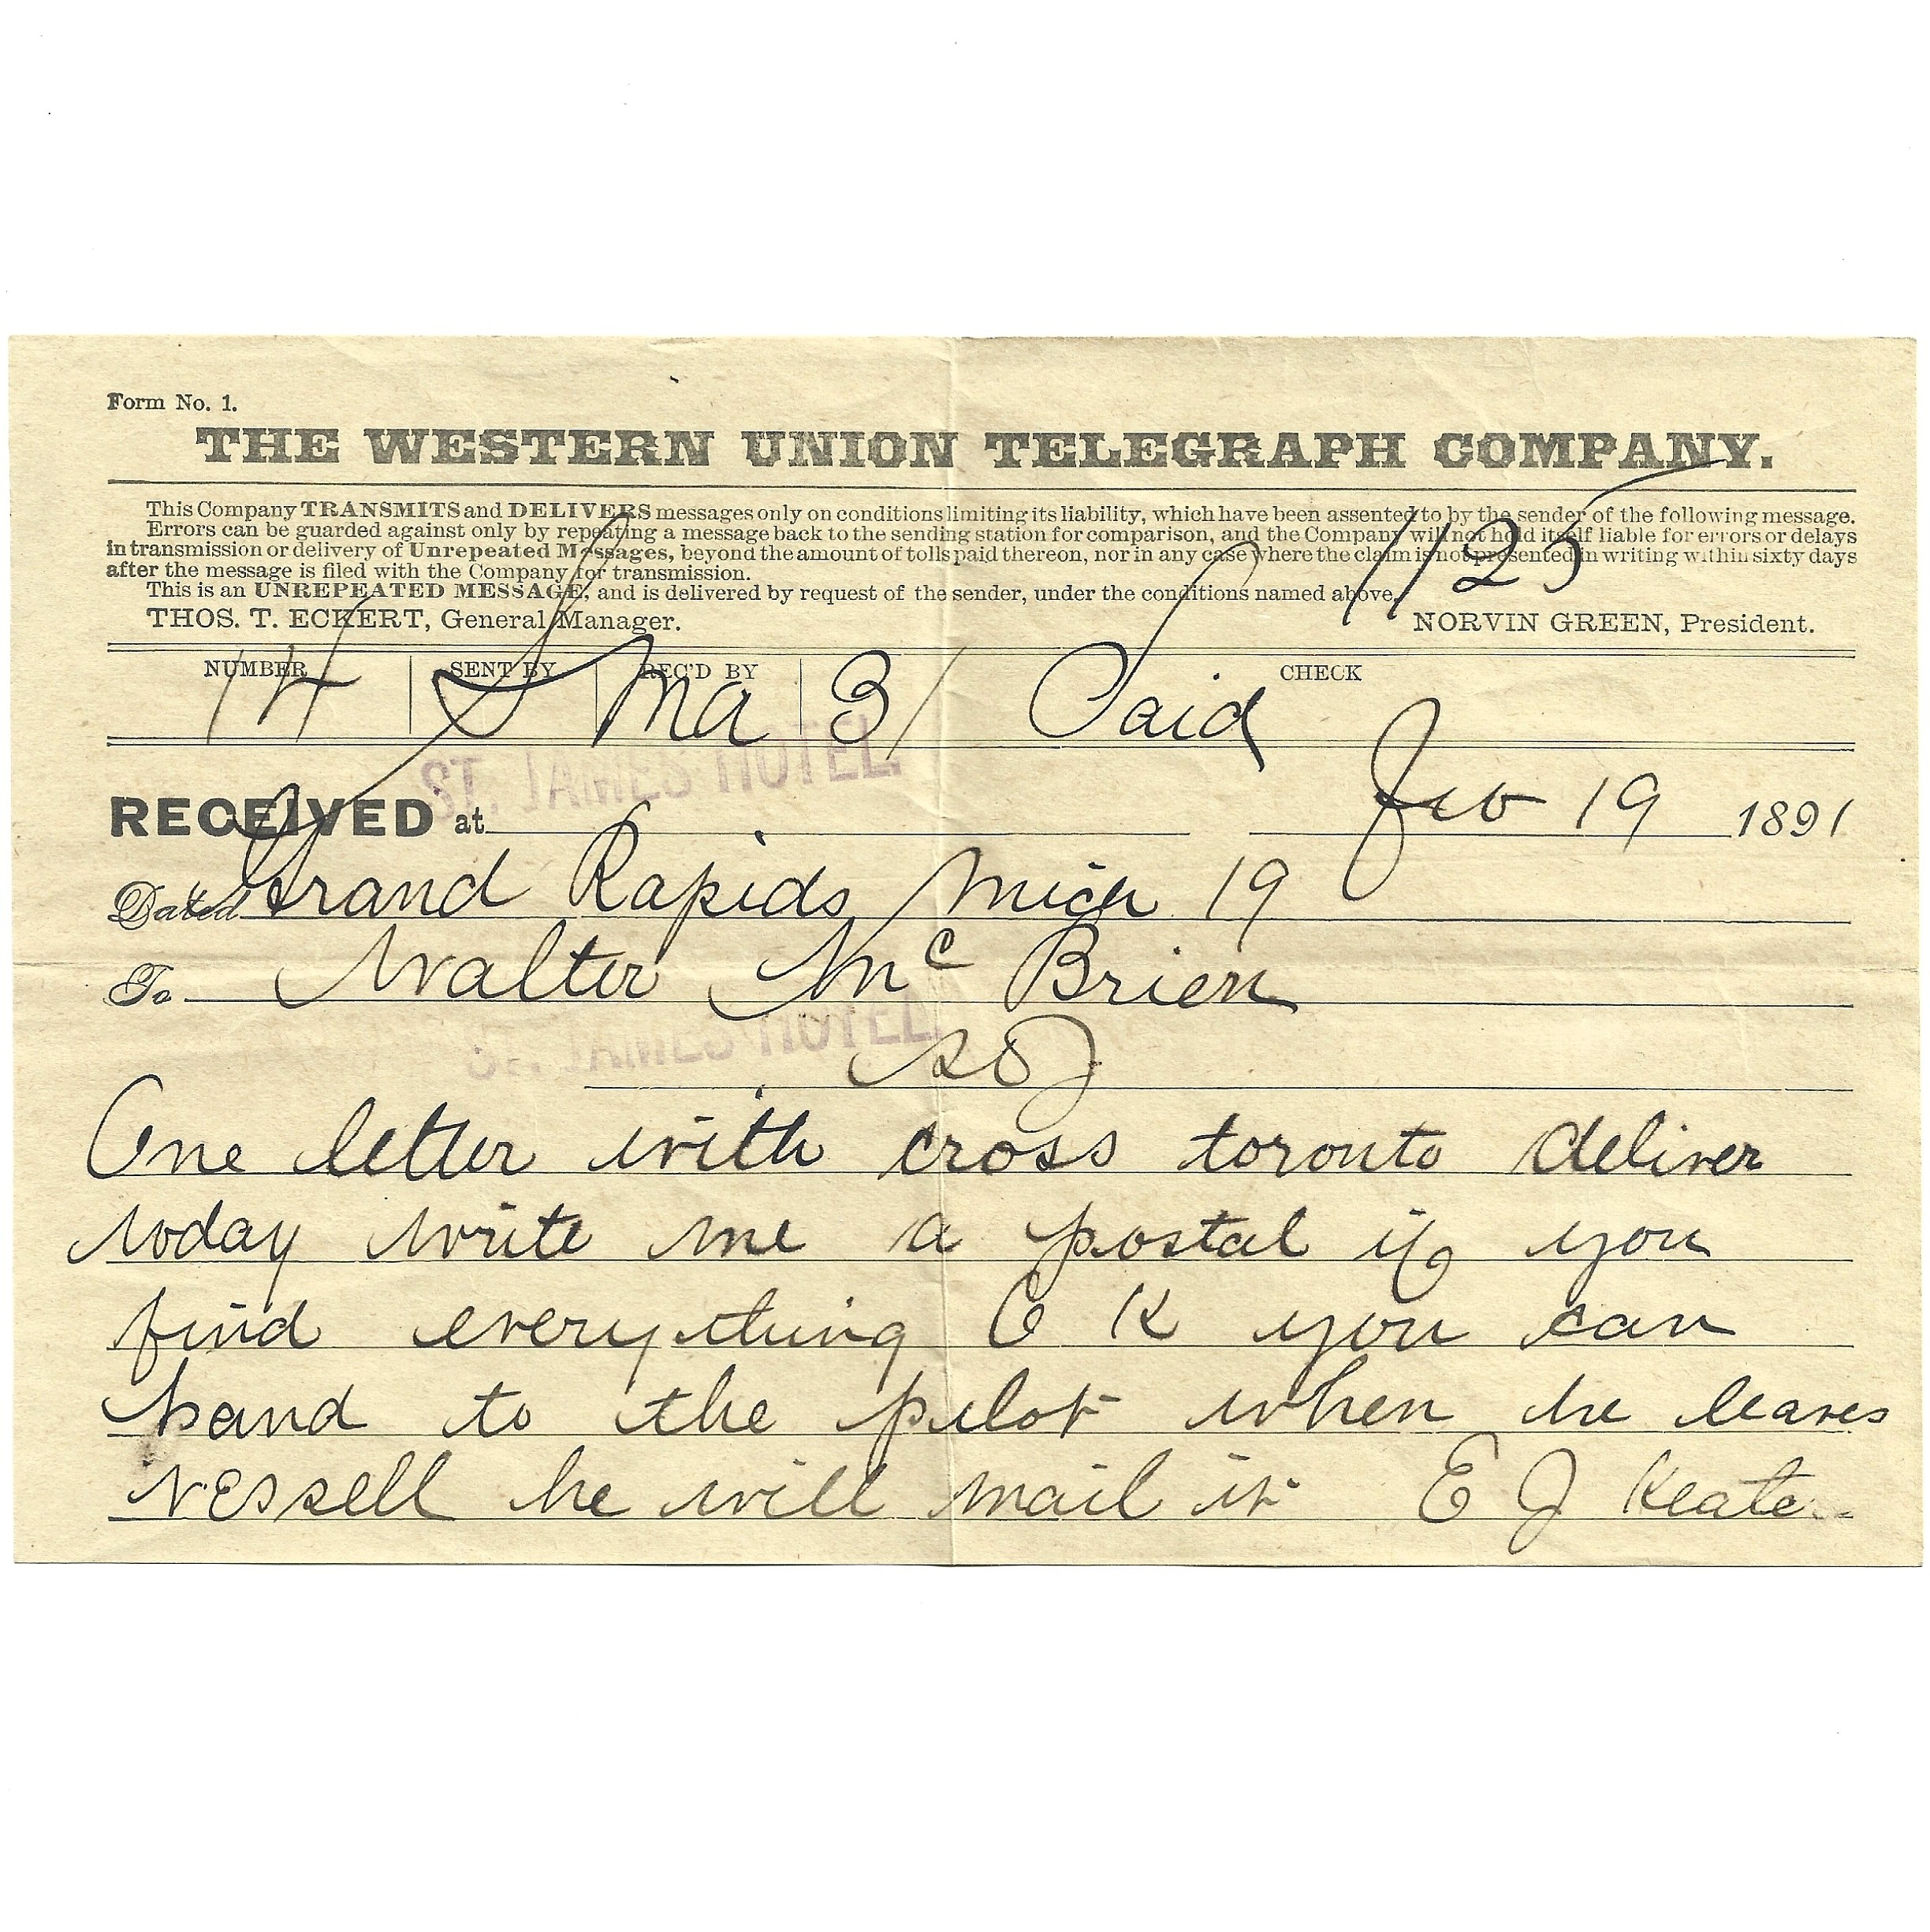 Form No. 1.
THE WESTERN UNION TELEGRAPH COMPANY.
This Company TRANSMITS and DELIVERS messages only on conditions limiting its liability, which have been assented to by the sender of the following message.
Errors can be guarded against only by repeating a message back to the sending station for comparison, and the Company will not hold itself liable for errors or delays
in transmission or delivery of Unrepeated Messages, beyond the amount of tolls paid thereon, nor in any case where the claim is not presented in writing within sixty days
after the message is filed with the Company for transmission.
This is an UNREPEATED MESSAGE, and is delivered by request of the sender, under the conditions named above.
1125
THOS. T. ECKERT, General Manager. NORVIN GREEN, President.
NUMBER SENT BY REC'D BY CHECK
14 Ma 31 Paid
ST. JAMES HOTEL.
RECEIVED at Feb 19 1891
Dated Grand Rapids Mich 19
To Walter Mc Brien
ST. JAMES HOTEL.
One letter with cross toronto deliver
today write me a postal if you
find everything O K you can
hand to the pilot when he leaves
vessell he will mail it E J Keate